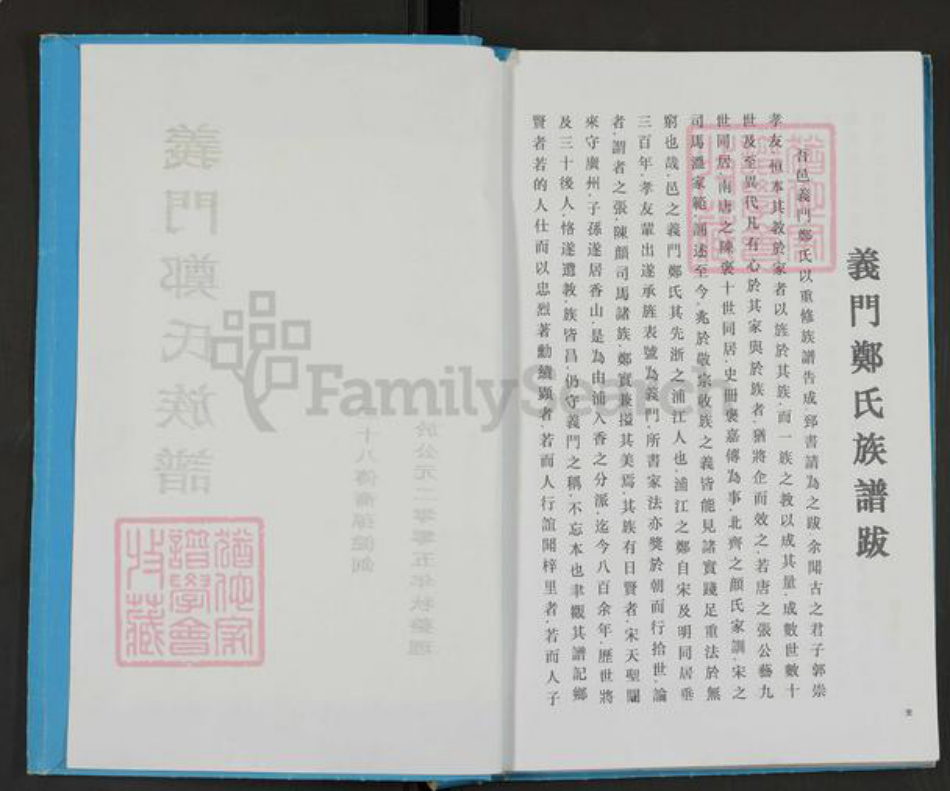 義門鄭氏族譜跋
吾邑義門鄭氏以重修族譜告成郅書請為之跋余聞古之君子郭崇
孝友恒本其教於家者以旌於其族而一族之教以成其量成數世數十
世及至異代凡有心於其家與於族者猶將企而效之若唐之張公藝九
世同居南唐之陳褒十世同居史冊褒嘉傳為事北齊之顏氏家訓宋之
司馬溫家範誦述至今兆於敬宗收族之義皆能見諸實踐足重法於無
窮也哉邑之義門鄭氏其先浙之浦江人也浦江之鄭自宋及明同居垂
三百年孝友輩出遂承旌表號為義門所書家法亦獎於朝而行拾世論
者謂者之張陳顏司馬諸族鄭實兼搤其美焉其族有日賢者宋天聖閣
來守廣州子孫遂居香山是為由浦入香之分派迄今八百余年歷世將
及三十後人恪遂遺教族皆昌仍守義門之稱不忘本也聿觀其譜記鄉
賢者若的人仕而以忠烈著勳績顯者若而人行誼聞梓里者若而人子
義門鄭氏族譜
於公元二零零五年秋整理
FamilySearch